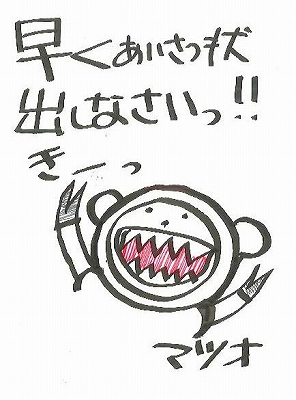 早くあいさつ状
出しなさいっ!!
きーっ
マツオ